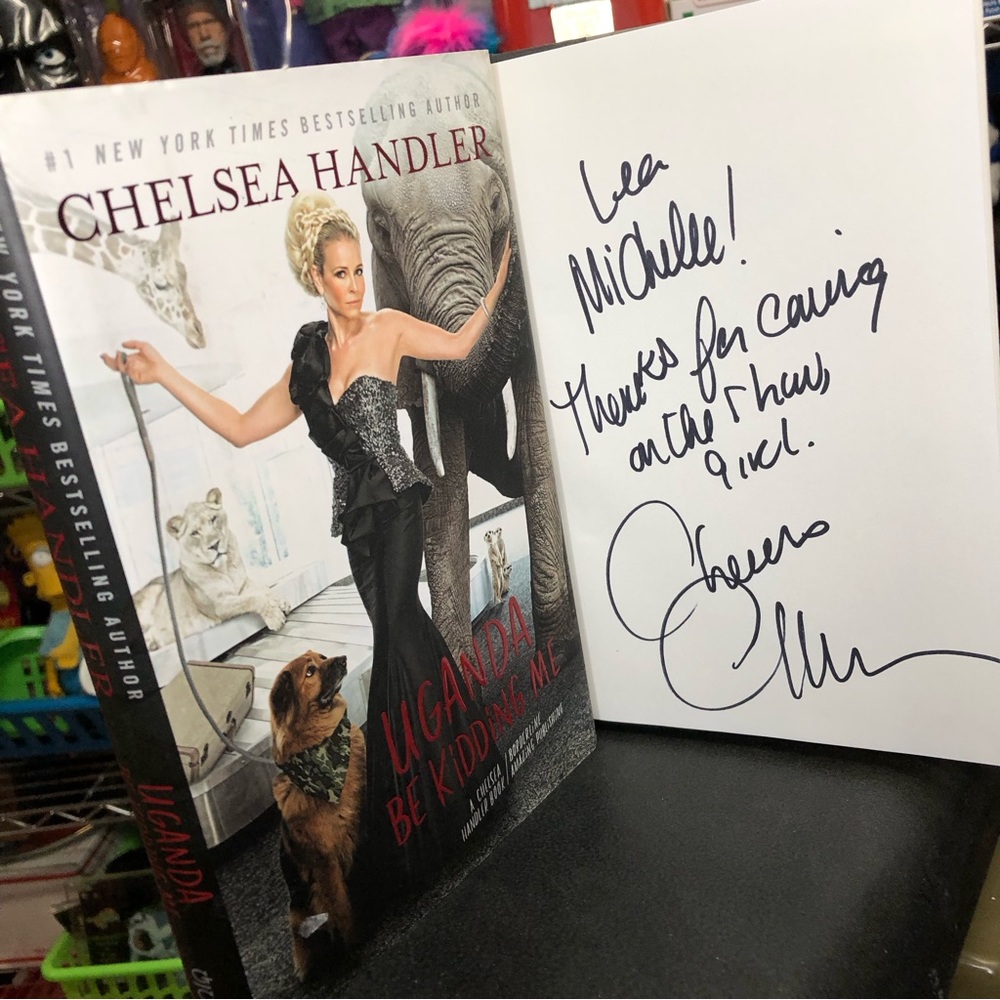 #1 NEW YORK TIMES BESTSELLING AUTHOR
CHELSEA HANDLER
UGANDA
BE KIDDING ME
A CHELSEA
HANDLER BOOK/
BORDERLINE
AMAZING PUBLISHING
W YORK TIMES BESTSELLING AUTHOR
SEA HANDLER
UGANDA
Lea
Michelle!
Thanks for coming
on the show,
girl.
Cheers